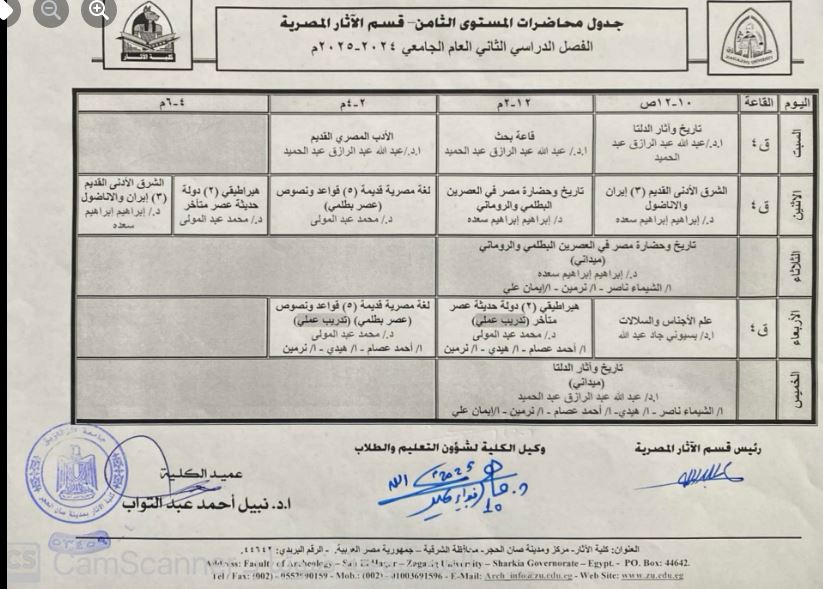 جدول محاضرات المستوى الثامن– قسم الآثار المصرية
الفصل الدراسي الثاني العام الجامعي ٢٠٢٤-٢٠٢٥م
كلية الآثار
اليوم القاعة ١٠-١٢ص ١٢-٢م ٢-٤م ٤-٦م
السبت
ق٤
تاريخ وآثار الدلتا
ا.د./عبد الله عبد الرازق عبد
الحميد
قاعة بحث
ا.د./ عبد الله عبد الرازق عبد الحميد
الأدب المصري القديم
ا.د./عبد الله عبد الرازق عبد الحميد
الاثنين
ق٤
الشرق الأدنى القديم (٣) إيران
والاناضول
د./ إبراهيم إبراهيم سعده
تاريخ وحضارة مصر في العصرين
البطلمي والروماني
د/ إبراهيم إبراهيم سعده
لغة مصرية قديمة (٥) قواعد ونصوص
(عصر بطلمي)
د./ محمد عبد المولى
هيراطيقي (٢) دولة
حديثة عصر متأخر
د./ محمد عبد المولى
الشرق الأدنى القديم
(٣) إيران والاناضول
د./ إبراهيم إبراهيم
سعده
الثلاثاء
تاريخ وحضارة مصر في العصرين البطلمي والروماني
(ميداني)
د./ إبراهيم إبراهيم سعده
ا/ الشيماء ناصر - ا/ نرمين - ا/إيمان علي
الأربعاء
ق٤
علم الأجناس والسلالات
ا.د/ بسيوني جاد عبد الله
هيراطيقي (٢) دولة حديثة عصر
متأخر (تدريب عملي)
د./ محمد عبد المولى
ا/ أحمد عصام - ا/ هيدي - ا/ نرمين
لغة مصرية قديمة (٥) قواعد ونصوص
(عصر بطلمي) (تدريب عملي)
د./ محمد عبد المولى
ا/ أحمد عصام - ا/ هيدي - ا/ نرمين
الخميس
تاريخ وآثار الدلتا
(ميداني)
ا.د/ عبد الله عبد الرازق عبد الحميد
ا/ الشيماء ناصر - ا/ هيدي- ا/ أحمد عصام - ا/ نرمين - ا/إيمان علي
رئيس قسم الآثار المصرية
وكيل الكلية لشؤون التعليم والطلاب
عميد الكلية
ا.د. نبيل أحمد عبد التواب
العنوان: كلية الآثار- مركز ومدينة صان الحجر- محافظة الشرقية – جمهورية مصر العربية. - الرقم البريدي: ٤٤٦٤٢.
Address: Faculty of Archeology – San El-Hagar – Zagazig University – Sharkia Governorate – Egypt. - PO. Box: 44642.
Tel / Fax: (002) - 0552590159 - Mob.: (002) - 01003691596 - E-Mail: Arch_info@zu.edu.eg - Web Site: www.zu.edu.eg
CS CamScanner